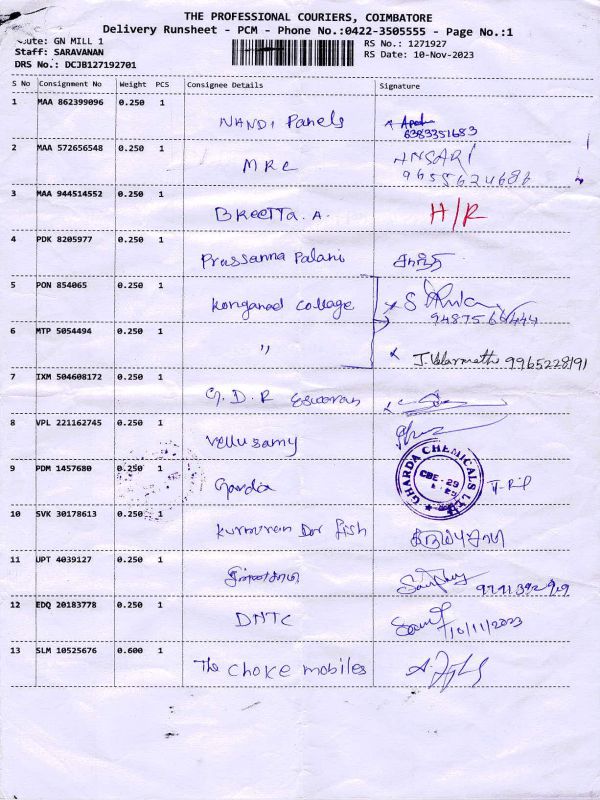 THE PROFESSIONAL COURIERS, COIMBATORE
Delivery Runsheet - PCM - Phone No.:0422-3505555 - Page No.:1
Route: GN MILL 1
RS No.: 1271927
Staff: SARAVANAN
RS Date: 10-Nov-2023
DRS No.: DCJB127192701
S No Consignment No Weight PCS Consignee Details Signature
1 MAA 862399096 0.250 1
NANDI Panels
6383351683
2 MAA 572656548 0.250 1
MRC ANSARI
3 MAA 944514552 0.250 1
BReetta. A. H/R
4 PDK 8205977 0.250 1
Prassanna Palani
5 PON 854065 0.250 1
Konganad collage
6 MTP 5054494 0.250 1
" 9965228191
7 IXM 504608172 0.250 1
G. D. R
8 VPL 221162745 0.250 1
Vellusamy
9 PDM 1457680 0.250 1
Garda
GHARDA CHEMICALS LTD
CBE - 29
10 SVK 30178613 0.250 1
Fish
11 UPT 4039127 0.250 1
12 EDQ 20183778 0.250 1
DNTC
10/11/2023
13 SLM 10525676 0.600 1
The choice mobiles